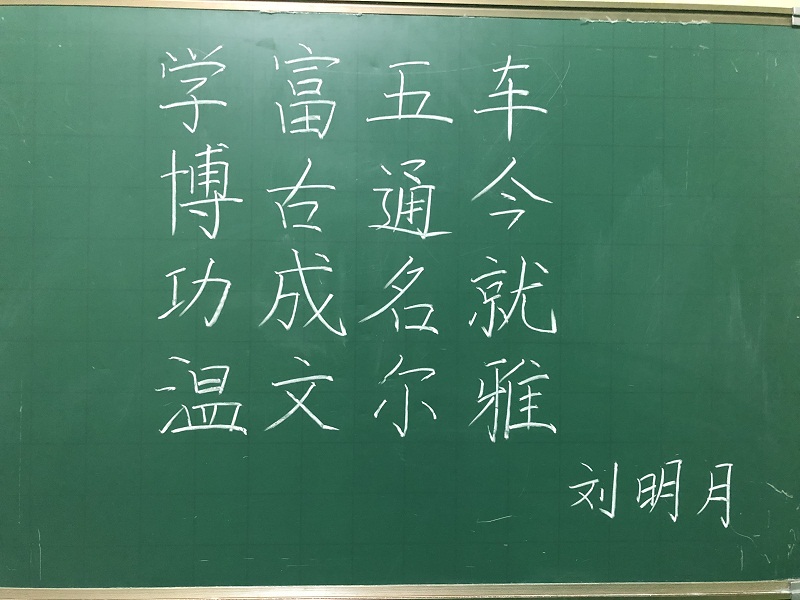 学富五车
博古通今
功成名就
温文尔雅
刘明月